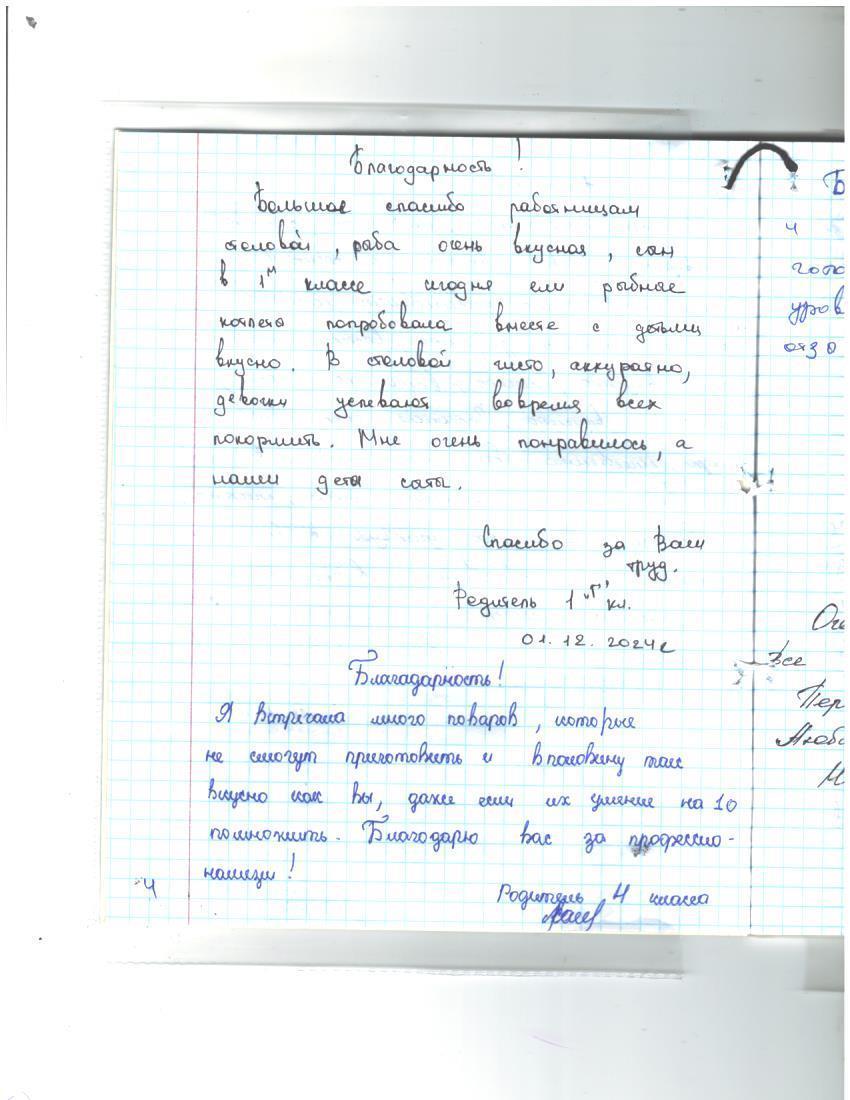 Благодарность!
Большое спасибо работницам
столовой, рыба очень вкусная, сын
в 1м классе сегодня ели рыбные
котлеты попробовала вместе с детьми
вкусно. В столовой чисто, аккуратно,
девочки успевают вовремя всех
покормить. Мне очень понравилось, а
наши дети сыты.
Спасибо за Ваш
труд.
Родитель 1 "Г" кл.
01.12.2024г
Благадарность!
Я встречала много поваров, которые
не смогут приготовить и вполовину так
вкусно как вы, даже если их умение на 10
помножить. Благодарю вас за профессио-
нализм!
Родитель 4 класса
4
Б
ч
гото
уров
отзо
Оче
Все
Пер
Любо
М